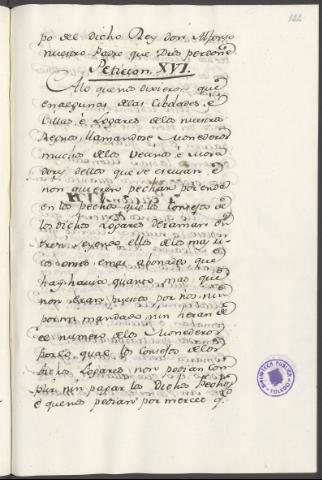 122
po del dicho Rey don Alfonso
nuestro Padre que Dios perdone
Peticion XVI.
A lo que nos dixeron que
en algunas delas Cibdades, é
Villas, é Logares delos nuestros
Reynos, llamandose Monederos
muchos delos Vecinos é Mora
dores dellos que se escusan, é
non quieren pechar por ende
en los pechos que los Consejos de
los dichos Logares derraman en
tre si, é seyendo ellos delos mas ri
cos omes, é mas abonados que
hay havia quanto mas que
non obran, puestos por nos, nin
por mi mandado, nin heran de
el numero delos Monederos
por lo qual los Consejos delos
dichos Logares non podian com
plir, nin pagar los Dichos Pechos
é que nos pedian por merced q.
BIBLIOTECA PUBLICA
TOLEDO